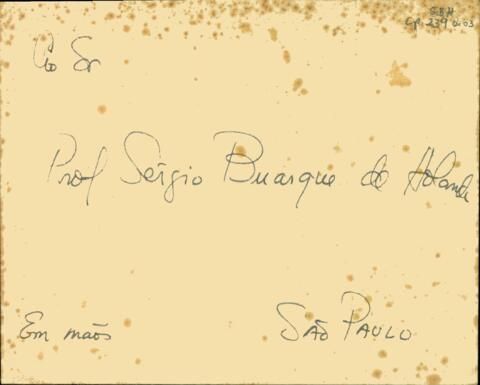 SBH
Cp. 239 d.03
Ao Sr
Prof Sérgio Buarque de Holanda
Em mãos
São Paulo